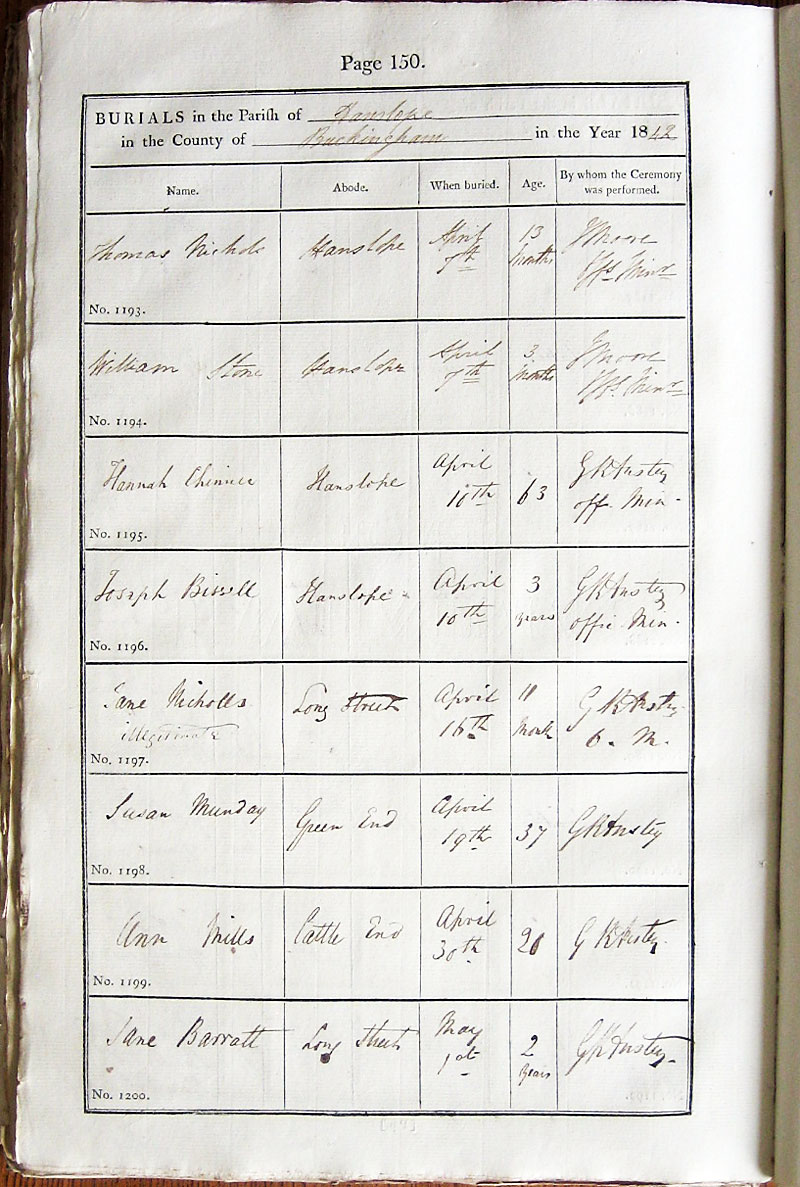 Page 150.
BURIALS in the Parish of Hanslope
in the County of Buckingham in the Year 1842
Name. Abode. When buried. Age. By whom the Ceremony was performed.
Thomas Nichols Hanslope April 7th 13 Months J Moore Offg Minr
No. 1193.
William Stone Hanslope April 7th 3 Months J Moore Offg Minr
No. 1194.
Hannah Chinnee Hanslope April 10th 63 G K Anstey off. Min.
No. 1195.
Joseph Bissell Hanslope April 10th 3 years G K Anstey offi Min.
No. 1196.
Jane Nicholls Long Street April 16th 11 Month G K Anstey O. M.
illegitimate
No. 1197.
Susan Munday Green End April 19th 37 G K Anstey
No. 1198.
Ann Mills Cattle End April 30th G K Anstey
No. 1199.
Jane Barratt Long Street May 1st 2 Years G K Anstey
No. 1200.